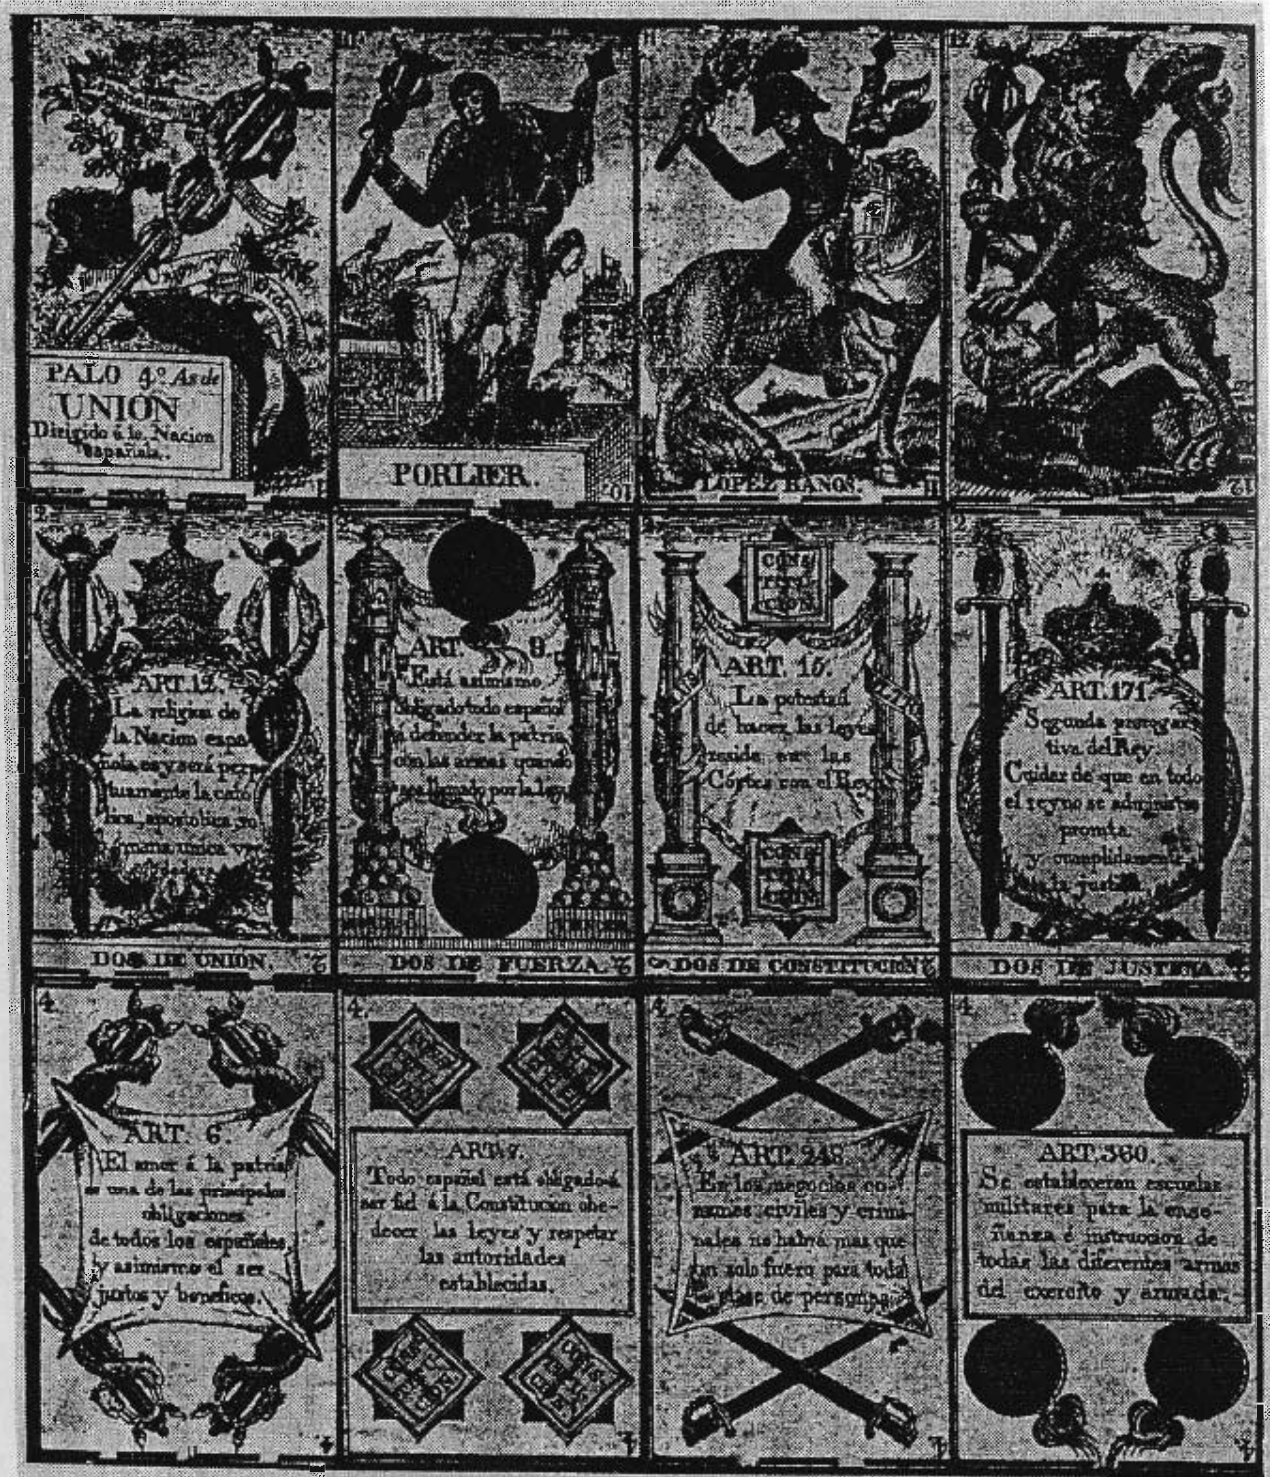 PALO 4º As de
UNION
Dirigido á la Nacion
española.
1
PORLIER.
10
11
LOPEZ BAÑOS.
11
12
12
2
ART. 12.
La religion de
la Nacion espa-
ñola es y será perpe-
tuamente la cató-
lica, apostolica, ro-
mana unica ver-
dadera
DOS DE UNION.
2
ART. 9.
Está asimismo
obligado todo español
a defender la patria
con las armas quando
sea llamado por la ley.
DOS DE FUERZA.
2
2
CONS
TITU
CION
ART. 15.
La potestad
de hacer las leyes
reside en las
Córtes con el Rey
CONS
TITU
CION
DOS DE CONSTITUCION
2
2
ART. 171.
Segunda prerogat
tiva del Rey.
Cuidar de que en todo
el reyno se administre
pronta
y cumplidamente
la justicia.
DOS DE JUSTICIA.
4.
ART. 6.
El amor á la patria
es una de las principales
obligaciones
de todos los españoles,
y asimismo el ser
justos y beneficos.
4
4.
ART. 7.
Todo español está obligado á
ser fiel á la Constitucion obe-
decer las leyes y respetar
las autoridades
establecidas.
CONS
TITU
CION
CONS
TITU
CION
4
4
ART. 248
En los negocios co-
munes civiles y crimi-
nales no habrá mas que
un solo fuero para toda
clase de personas.
4
4
ART. 360.
Se establecerán escuelas
militares para la ense-
ñanza é instruccion de
todas las diferentes armas
del exercito y armada.
4